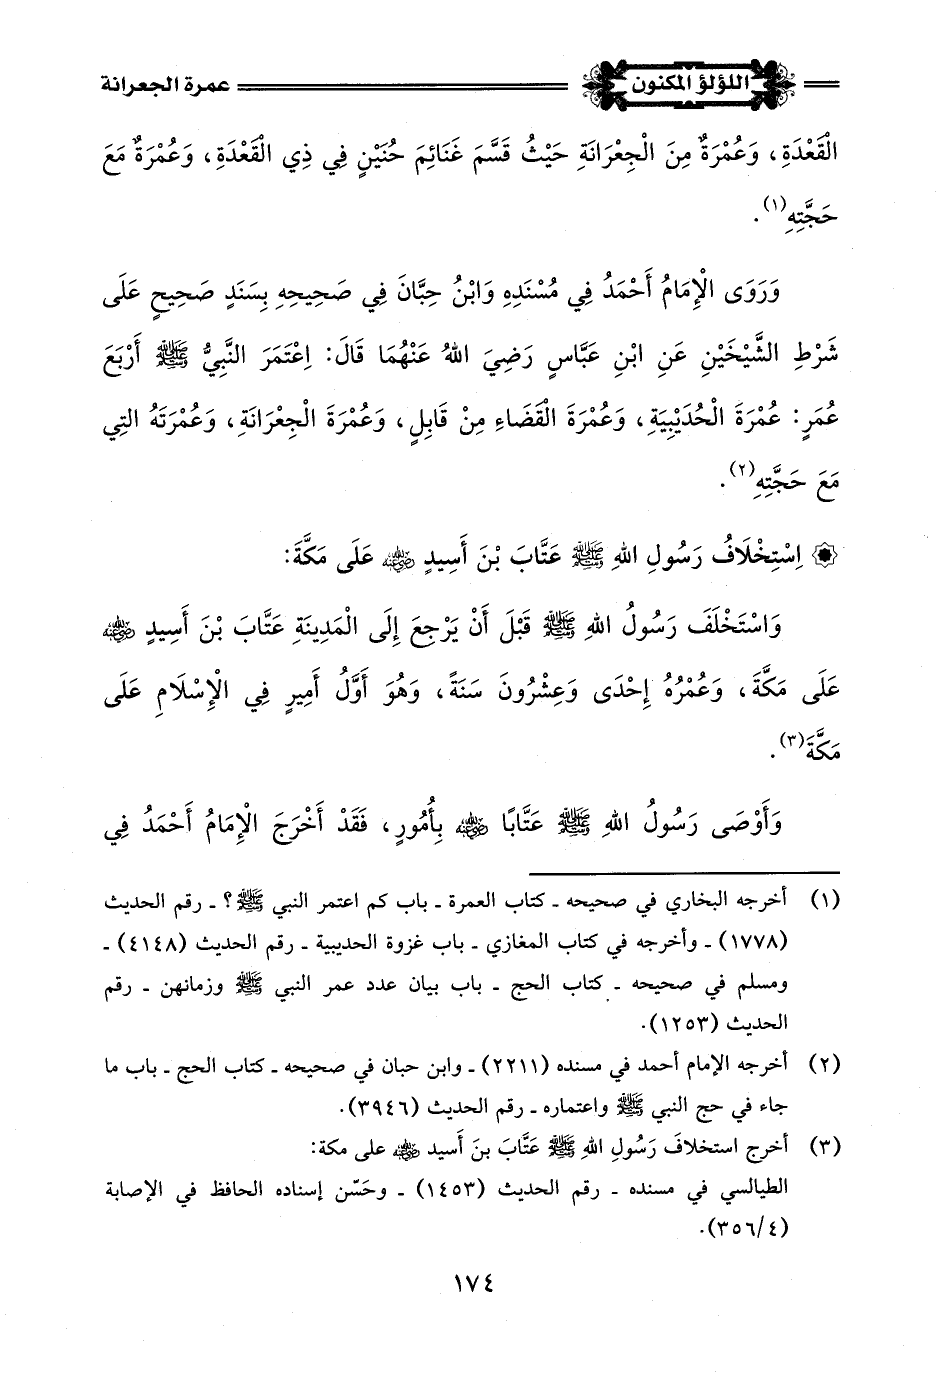 اللؤلؤ المكنون عمرة الجعرانة
الْقَعْدَةِ، وَعُمْرَةٌ مِنَ الْجِعْرَانَةِ حَيْثُ قَسَّمَ غَنَائِمَ حُنَيْنٍ فِي ذِي الْقَعْدَةِ، وَعُمْرَةٌ مَعَ
حَجَّتِهِ(١).
وَرَوَى الْإِمَامُ أَحْمَدُ فِي مُسْنَدِهِ وَابْنُ حِبَّانَ فِي صَحِيحِهِ بِسَنَدٍ صَحِيحٍ عَلَى
شَرْطِ الشَّيْخَيْنِ عَنِ ابْنِ عَبَّاسٍ رَضِيَ اللهُ عَنْهُمَا قَالَ: اِعْتَمَرَ النَّبِيُّ ﷺ أَرْبَعَ
عُمَرٍ: عُمْرَةَ الْحُدَيْبِيَةِ، وَعُمْرَةَ الْقَضَاءِ مِنْ قَابِلٍ، وَعُمْرَةَ الْجِعْرَانَةِ، وَعُمْرَتَهُ التِي
مَعَ حَجَّتِهِ(٢).
۞ اِسْتِخْلَافُ رَسُولِ اللهِ ﷺ عَتَّابَ بْنَ أَسِيدٍ رضي الله عنه عَلَى مَكَّةَ:
وَاسْتَخْلَفَ رَسُولُ اللهِ ﷺ قَبْلَ أَنْ يَرْجِعَ إِلَى الْمَدِينَةِ عَتَّابَ بْنَ أَسِيدٍ رضي الله عنه
عَلَى مَكَّةَ، وَعُمْرُهُ إِحْدَى وَعِشْرُونَ سَنَةً، وَهُوَ أَوَّلُ أَمِيرٍ فِي الْإِسْلَامِ عَلَى
مَكَّةَ(٣).
وَأَوْصَى رَسُولُ اللهِ ﷺ عَتَّابًا رضي الله عنه بِأُمُورٍ، فَقَدْ أَخْرَجَ الْإِمَامُ أَحْمَدُ فِي
(١) أخرجه البخاري في صحيحه ـ كتاب العمرة ـ باب كم اعتمر النبي ﷺ؟ ـ رقم الحديث
(١٧٧٨) ـ وأخرجه في كتاب المغازي ـ باب غزوة الحديبية ـ رقم الحديث (٤١٤٨) ـ
ومسلم في صحيحه ـ كتاب الحج ـ باب بيان عدد عمر النبي ﷺ وزمانهن ـ رقم
الحديث (١٢٥٣).
(٢) أخرجه الإمام أحمد في مسنده (٢٢١١) ـ وابن حبان في صحيحه ـ كتاب الحج ـ باب ما
جاء في حج النبي ﷺ واعتماره ـ رقم الحديث (٣٩٤٦).
(٣) أخرج استخلافَ رَسُولِ اللهِ ﷺ عَتَّابَ بنَ أَسيد رضي الله عنه على مكة:
الطيالسي في مسنده ـ رقم الحديث (١٤٥٣) ـ وحَسّن إسناده الحافظ في الإصابة
(٣٥٦/٤).
١٧٤